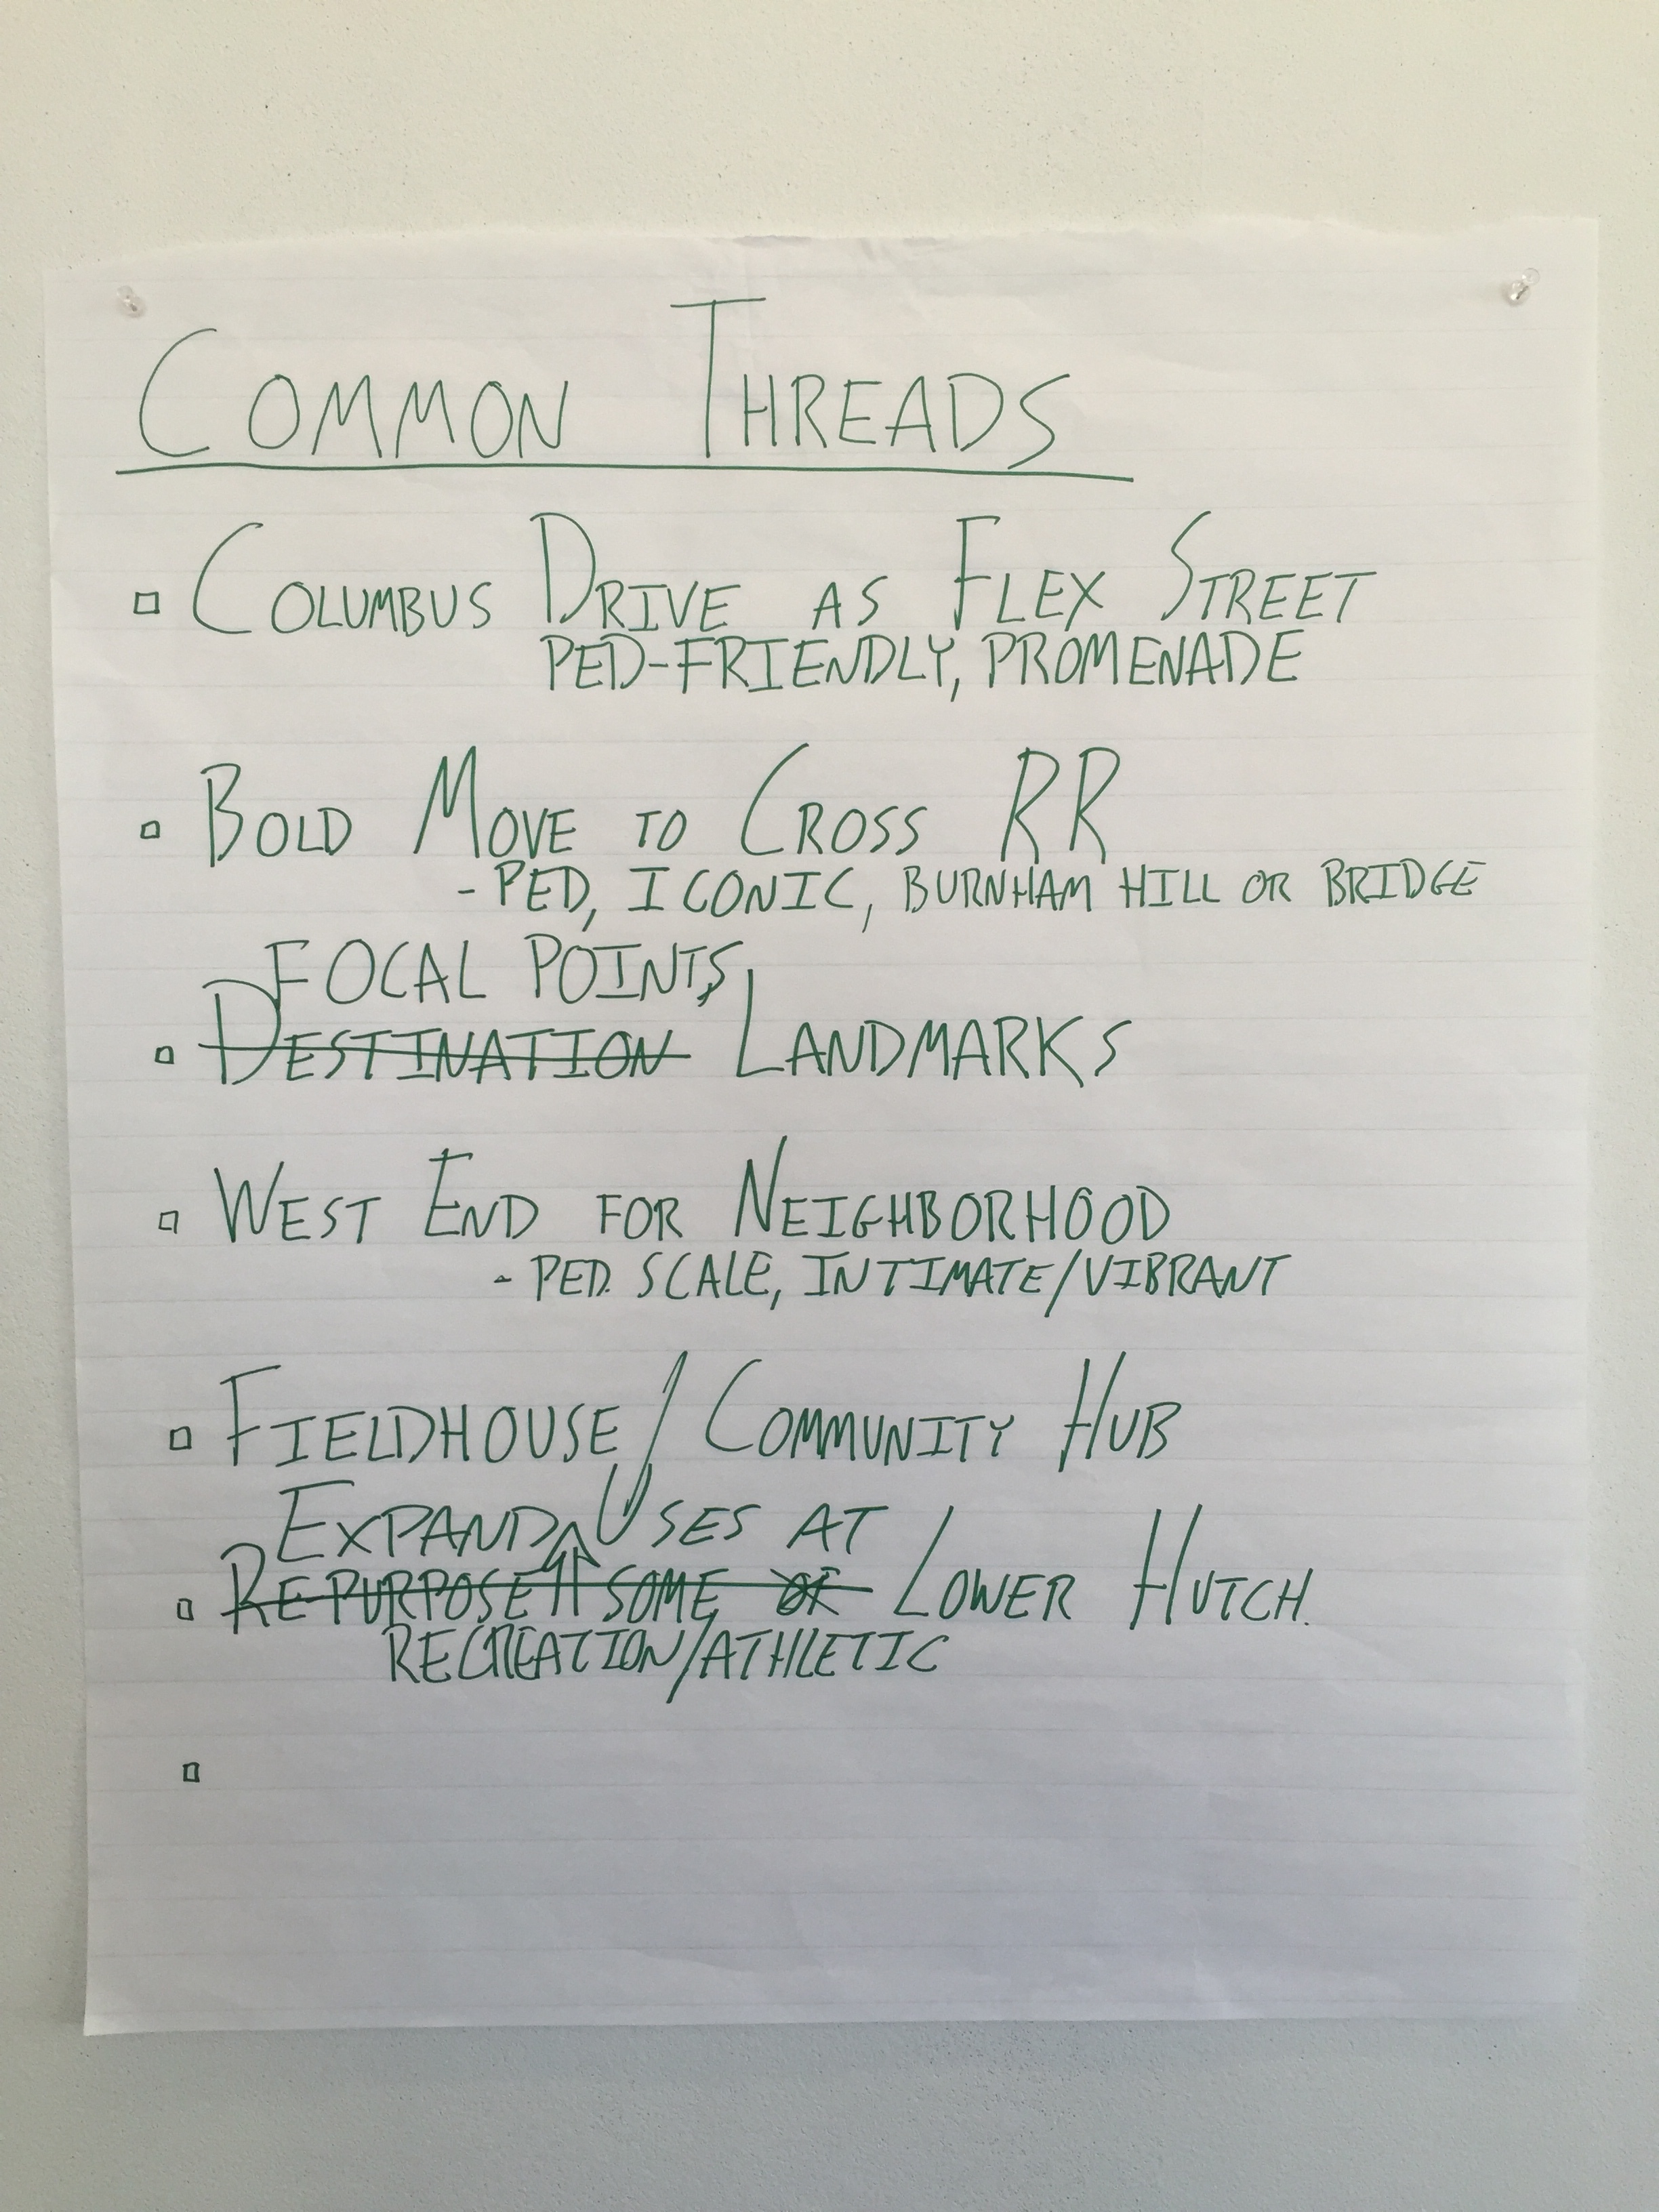 COMMON THREADS
COLUMBUS DRIVE AS FLEX STREET
PED-FRIENDLY, PROMENADE
BOLD MOVE TO CROSS RR
- PED, ICONIC, BURNHAM HILL OR BRIDGE
FOCAL POINTS,
DESTINATION LANDMARKS
WEST END FOR NEIGHBORHOOD
- PED. SCALE, INTIMATE/VIBRANT
FIELDHOUSE/COMMUNITY HUB
EXPAND USES AT
REPURPOSE SOME OF LOWER HUTCH.
RECREATION/ATHLETIC